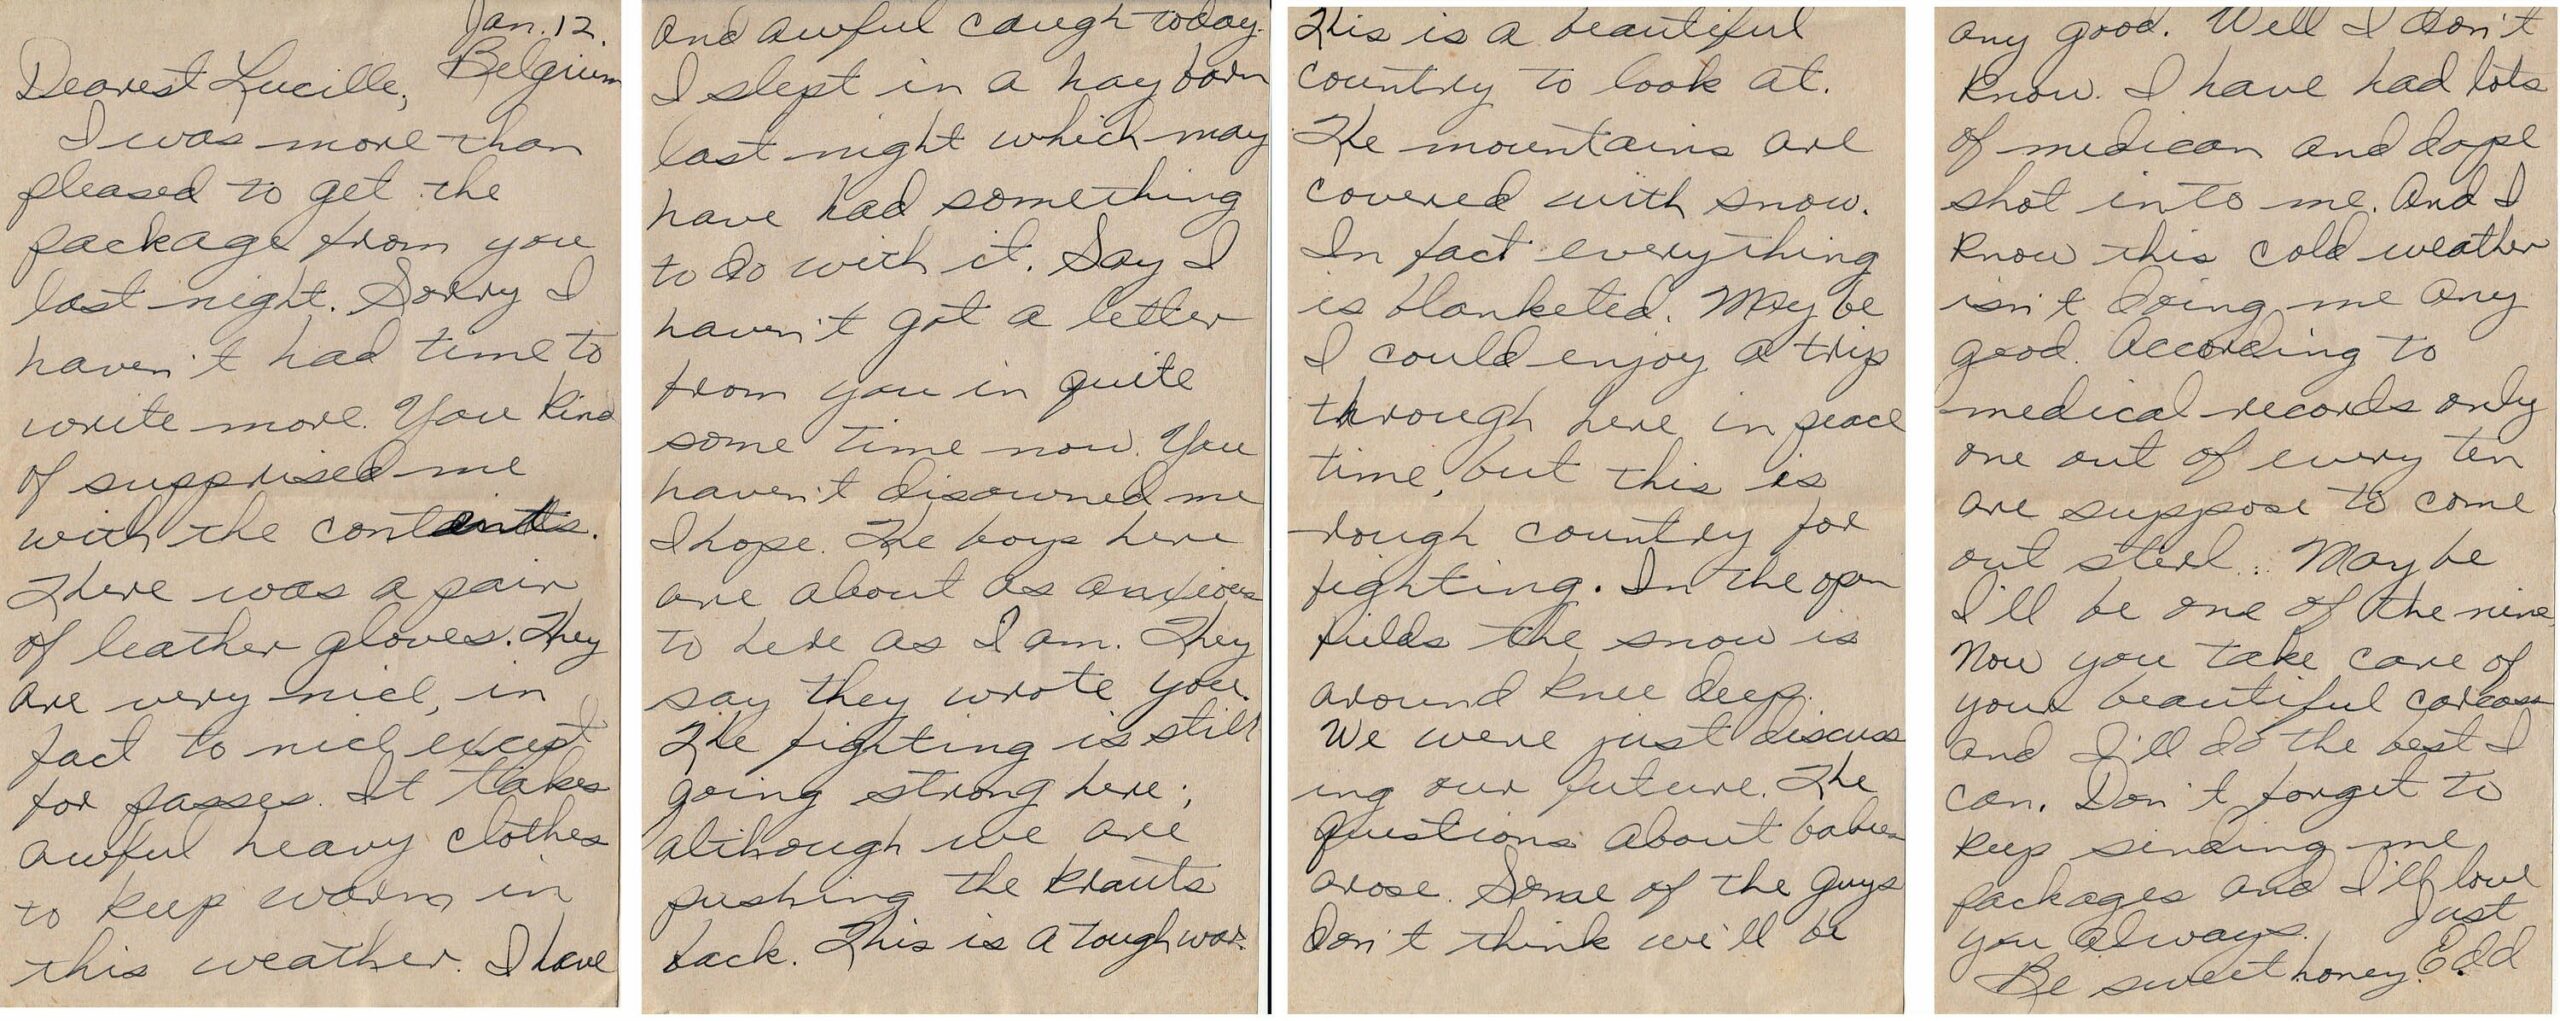 Jan. 12.
Belgium
Dearest Lucille,
I was more than
pleased to get the
package from you
last night. Sorry I
haven't had time to
write more. You kind
of supprised me
with the contents.
There was a pair
of leather gloves. They
are very nice, in
fact to nice except
for passes. It takes
awful heavy clothes
to keep warm in
this weather. I have
and awful caugh today.
I slept in a hay barn
last night which may
have had something
to do with it. Say I
haven't got a letter
from you in quite
some time now. You
haven't disowned me
I hope. The boys here
are about as anxious
to here as I am. They
say they wrote you.
The fighting is still
going strong here;
although we are
pushing the krauts
back. This is a tough war.
This is a beautiful
country to look at.
The mountains are
covered with snow.
In fact everything
is blanketed. May be
I could enjoy a trip
through here in peace
time, but this is
rough country for
fighting. In the open
fields the snow is
around knee deep.
We were just discuss
ing our future. The
questions about babies
arose. Some of the guys
don't think we'll be
any good. Well I don't
know. I have had lots
of medican and dope
shot into me. And I
know this cold weather
isn't doing me any
good. According to
medical records only
one out of every ten
are suppose to come
out sterl. May be
I'll be one of the nine.
Now you take care of
your beautiful carcass
and I'll do the best I
can. Don't forget to
keep sending me
packages and I'll love
you always. Just
Be sweet honey. Edd